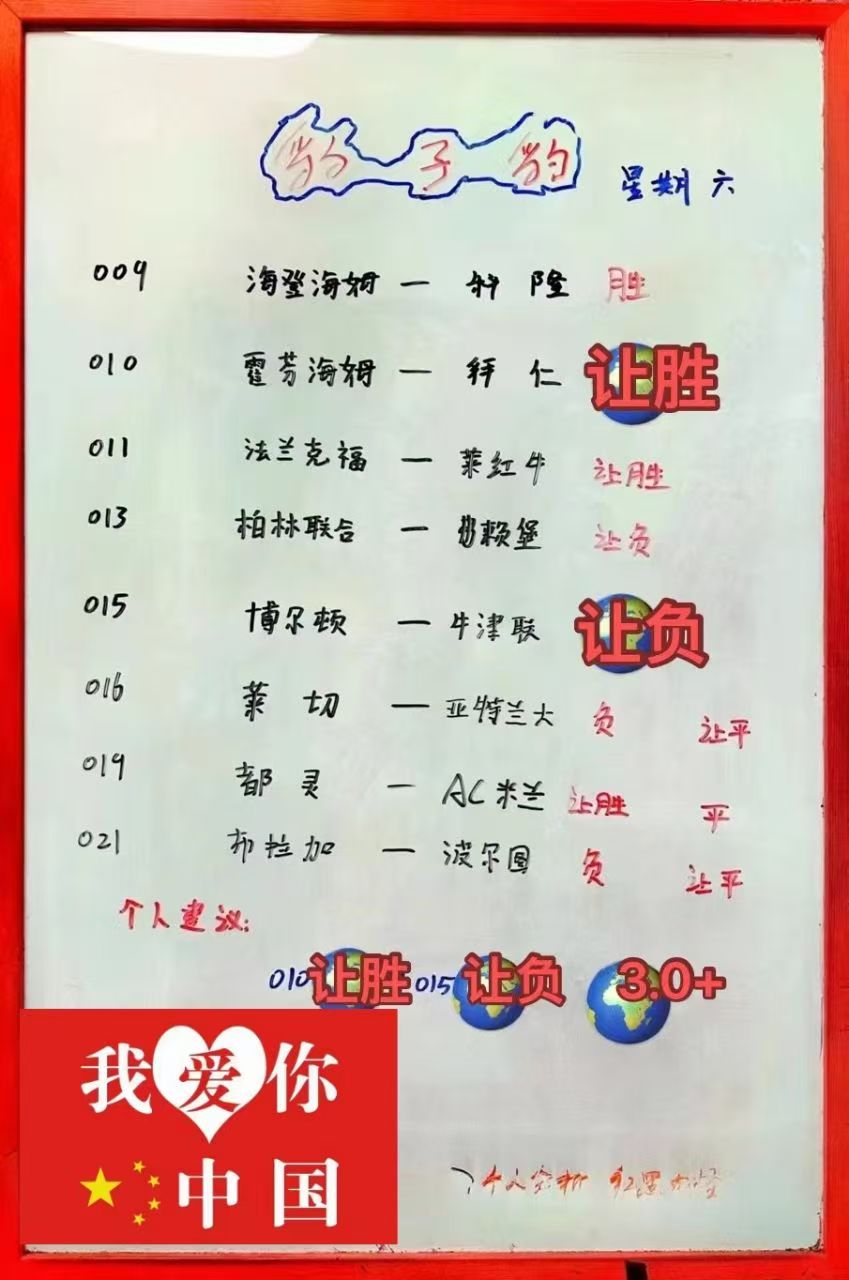 豹子豹 星期六
009 海登海姆 — 科隆 胜
010 霍芬海姆 — 拜仁 让胜
011 法兰克福 — 莱红牛 让胜
013 柏林联合 — 弗赖堡 让负
015 博尔顿 — 牛津联 让负
016 莱切 — 亚特兰大 负 让平
019 都灵 — AC米兰 让胜 平
021 布拉加 — 波尔图 负 让平
个人建议:
010让胜 015让负 3.0+
我爱你
中国
个人分析 红黑